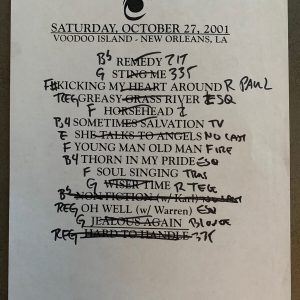 SATURDAY, OCTOBER 27, 2001
VOODOO ISLAND - NEW ORLEANS, LA
REMEDY
G STING ME 335
F# KICKING MY HEART AROUND R PAUL
REG GREASY GRASS RIVER ESQ
F HORSEHEAD
B4 SOMETIMES SALVATION TV
E SHE TALKS TO ANGELS NO LAST
F YOUNG MAN OLD MAN FIRE
B4 THORN IN MY PRIDE ESQ
F SOUL SINGING
G WISER TIME R TEG
NON FICTION (w/ Karl)
REG OH WELL (w/ Warren) ESQ
G JEALOUS AGAIN BLONDE
REG HARD TO HANDLE 335